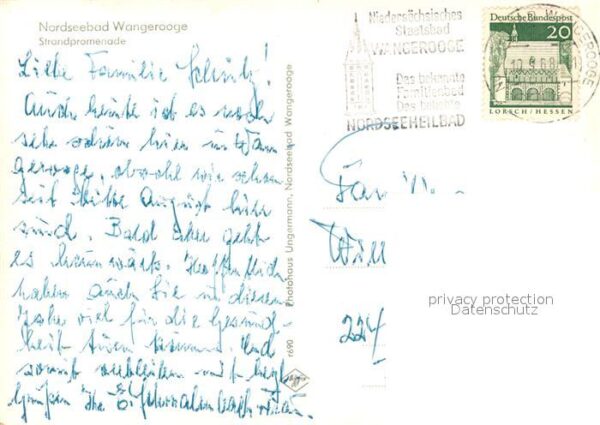 Nordseebad Wangerooge
Strandpromenade
Liebe Familie
Auch heute ist es noch
sehr schön hier in Wan
gerooge, obwohl wir schon
seit Mitte August hier
sind. Bald aber geht
es heimwärts. Hoffentlich
haben auch Sie in diesem
Jahr viel für die Gesund-
heit tuen können. Und
somit verbleiben mit herzl.
Grüßen Ihr
Photohaus Ungermann, Nordseebad Wangerooge
r690
Agfa
Niedersächsisches
Staatsbad
WANGEROOGE
Das bekannte
Familienbad
Das beliebte
NORDSEEHEILBAD
WANGEROOGE
Deutsche Bundespost
20
LORSCH/HESSEN
Fam.
224
privacy protection
Datenschutz